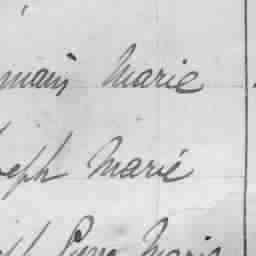 main Marie
seph Marie
seph Pierre Marie